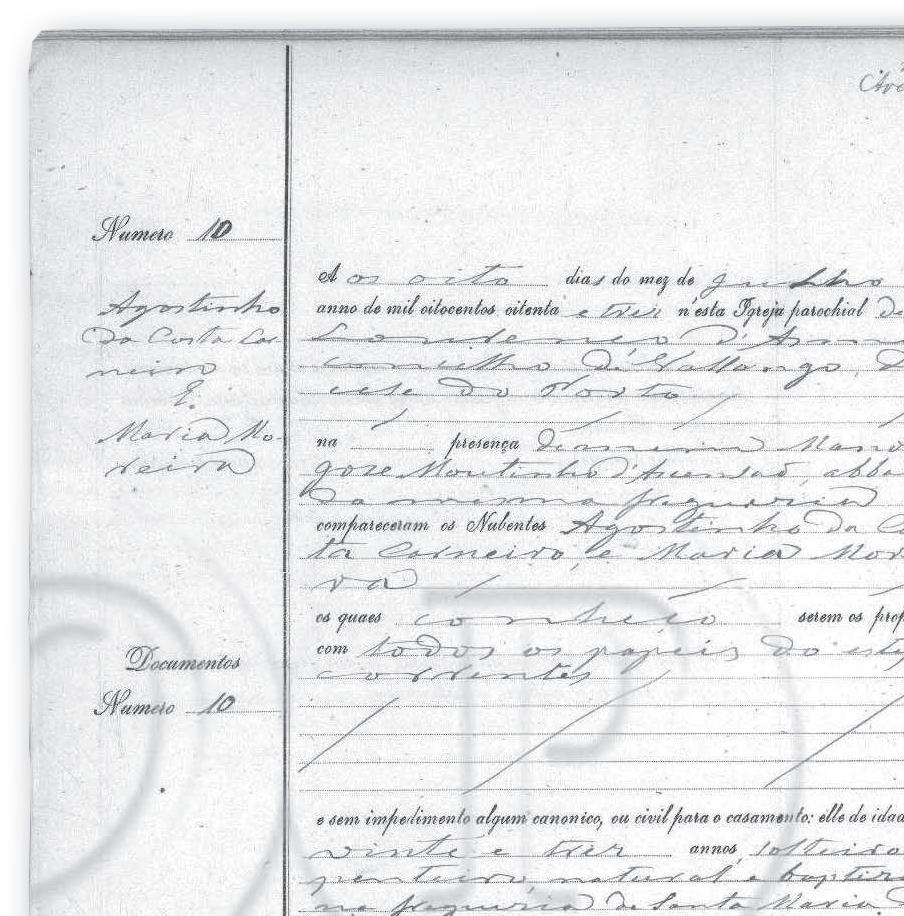 Numero 10
Agostinho
da Costa Car-
neiro
E.
Maria Mo-
reira
Documentos
Numero 10
Aos oito dias do mez de Junho
anno de mil oitocentos oitenta e trez n'esta Igreja parochial de
Lourenço d'
concelho de Vallongo, D
cese do Porto
na presença de mim Mano
Moutinho d'Ascensaõ, abba
da mesma freguezia
compareceram os Nubentes Agostinho da Co
ta Carneiro, e Maria Mor
ra
os quaes conheço serem os prop
com todos os papeis do est
correntes
e sem impedimento algum canonico, ou civil para o casamento: elle de idad
vinte e trez annos, solteiro
penteiro natural e baptiz
na freguezia de Santa Maria